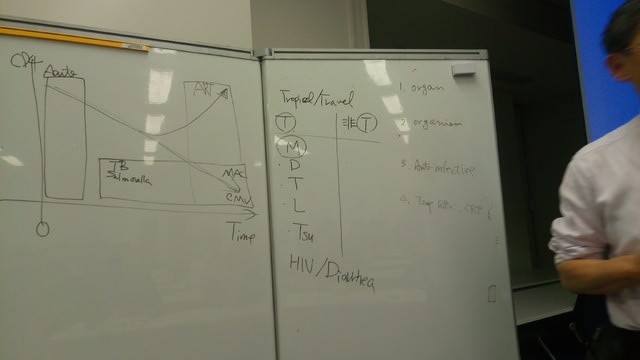 CD4
Acute
ART
TB
Salmonella
MAC
CMV
Time
Tropical/travel
T
T
M
D
T
L
Tsu
HIV/Diarrhea
1. organ
2. organism
3. Anti-infective
4. Temp CRP